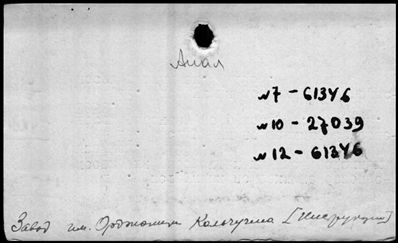 Анал
№7 - 61346
№10 - 27039
№12 - 61346
Завод им. Орджоник Кольчугина [Инструкции]